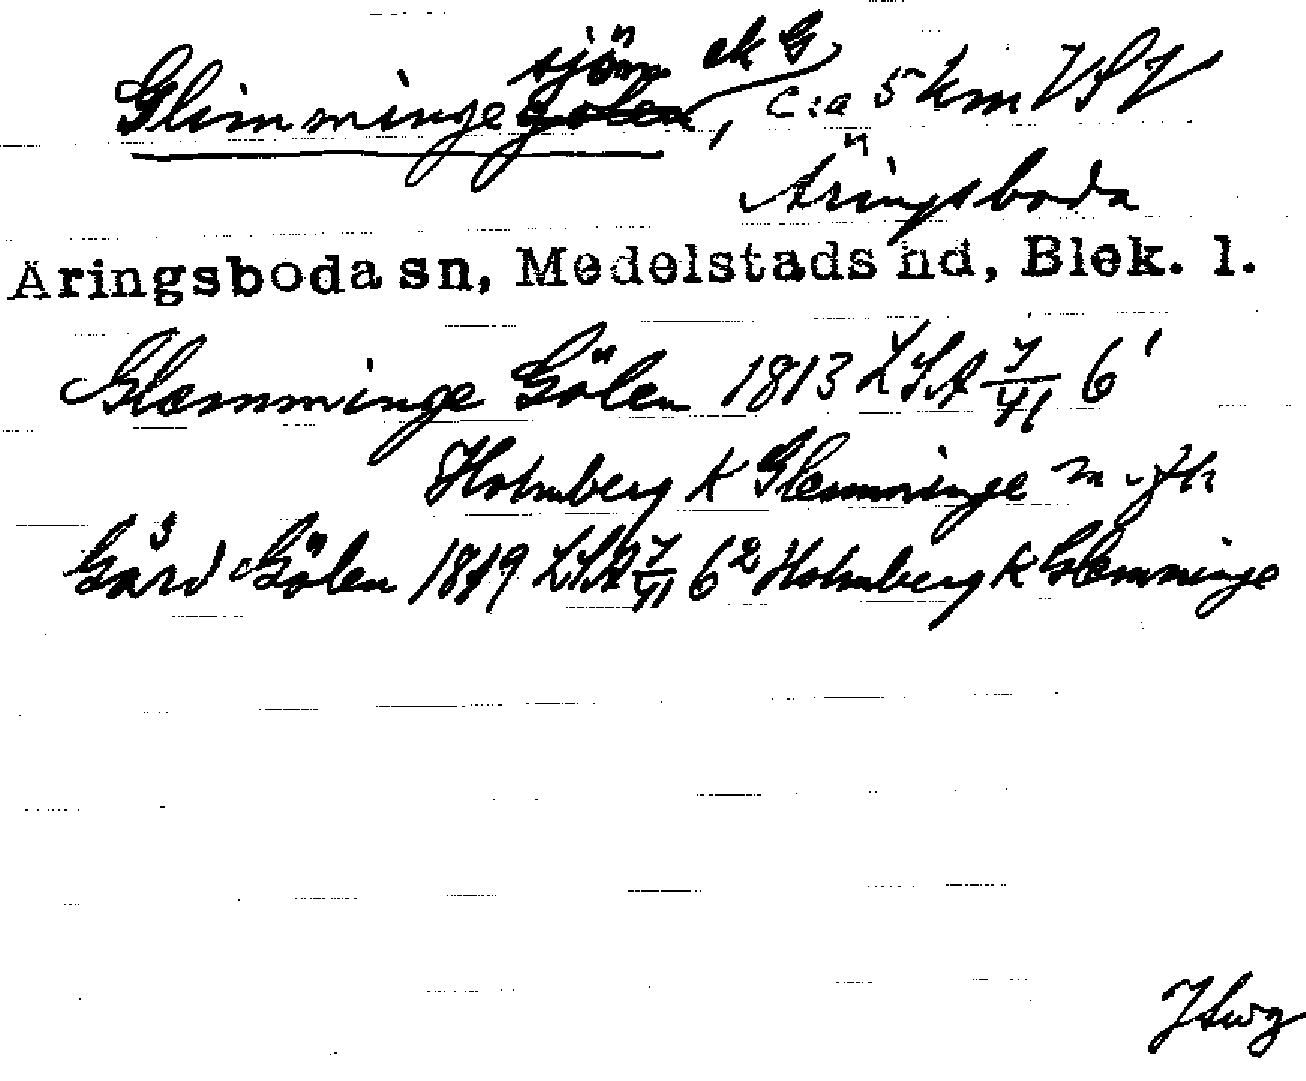 Glimminge sjön ek G
gölen, c:a 5 km VSV
Äringsboda
Äringsboda sn, Medelstads hd, Blek. l.
Glemminge Gölen 1813 LSA J/71 6¹
Holmberg k Glemminge m fl
Gård Gölen 1849 LSA J/71 6² Holmberg k Glemminge